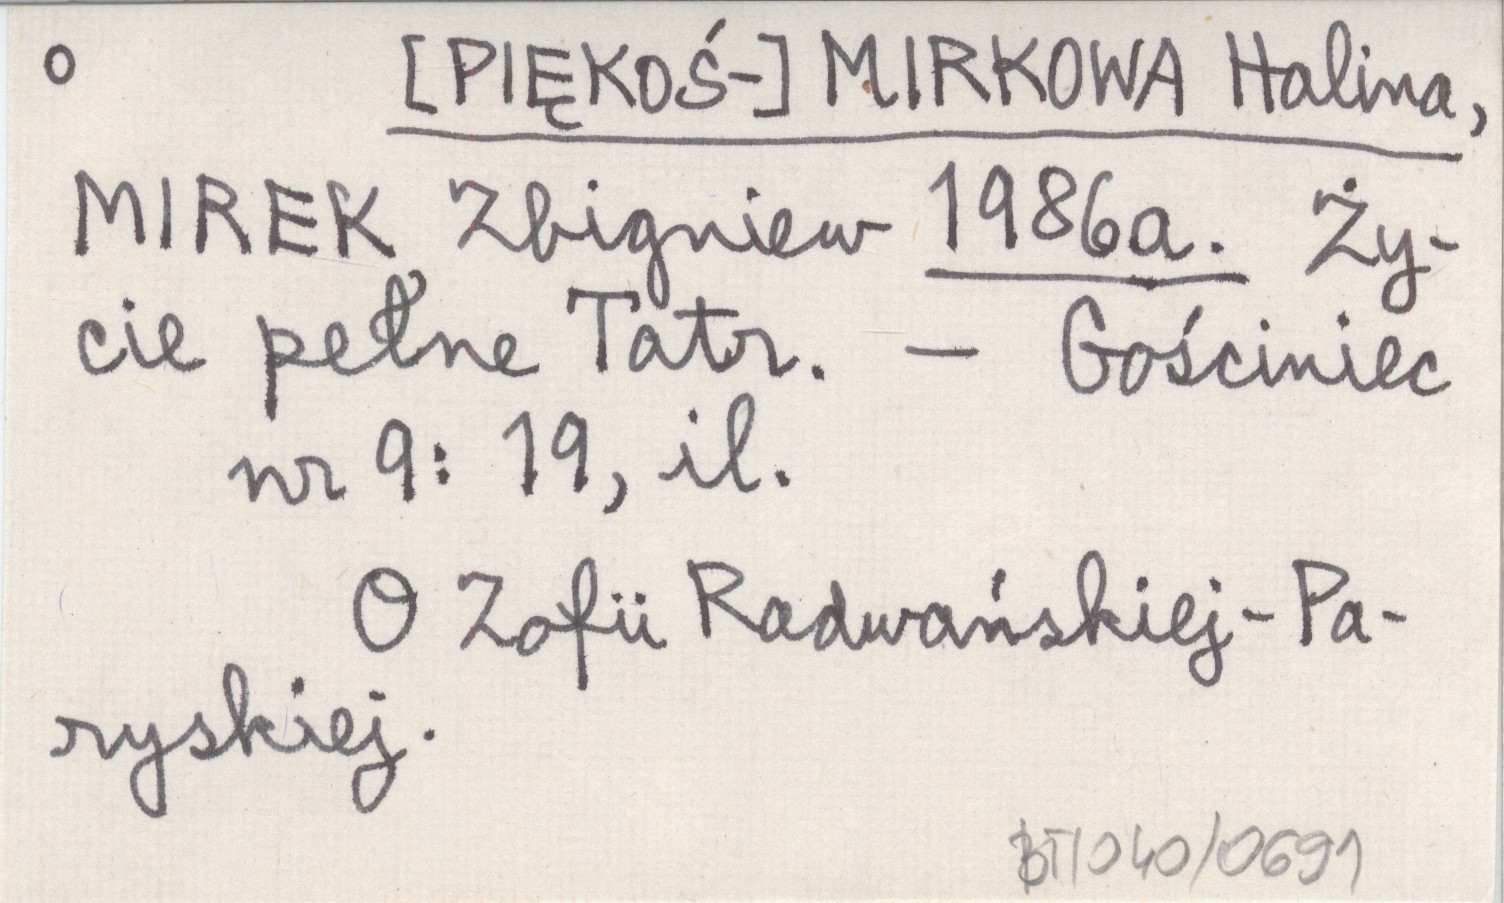 o [PIĘKOŚ-] MIRKOWA Halina,
MIREK Zbigniew 1986a. Ży-
cie pełne Tatr. — Gościniec
nr 9: 19, il.
O Zofii Radwańskiej-Pa-
ryskiej.
BT/040/0691